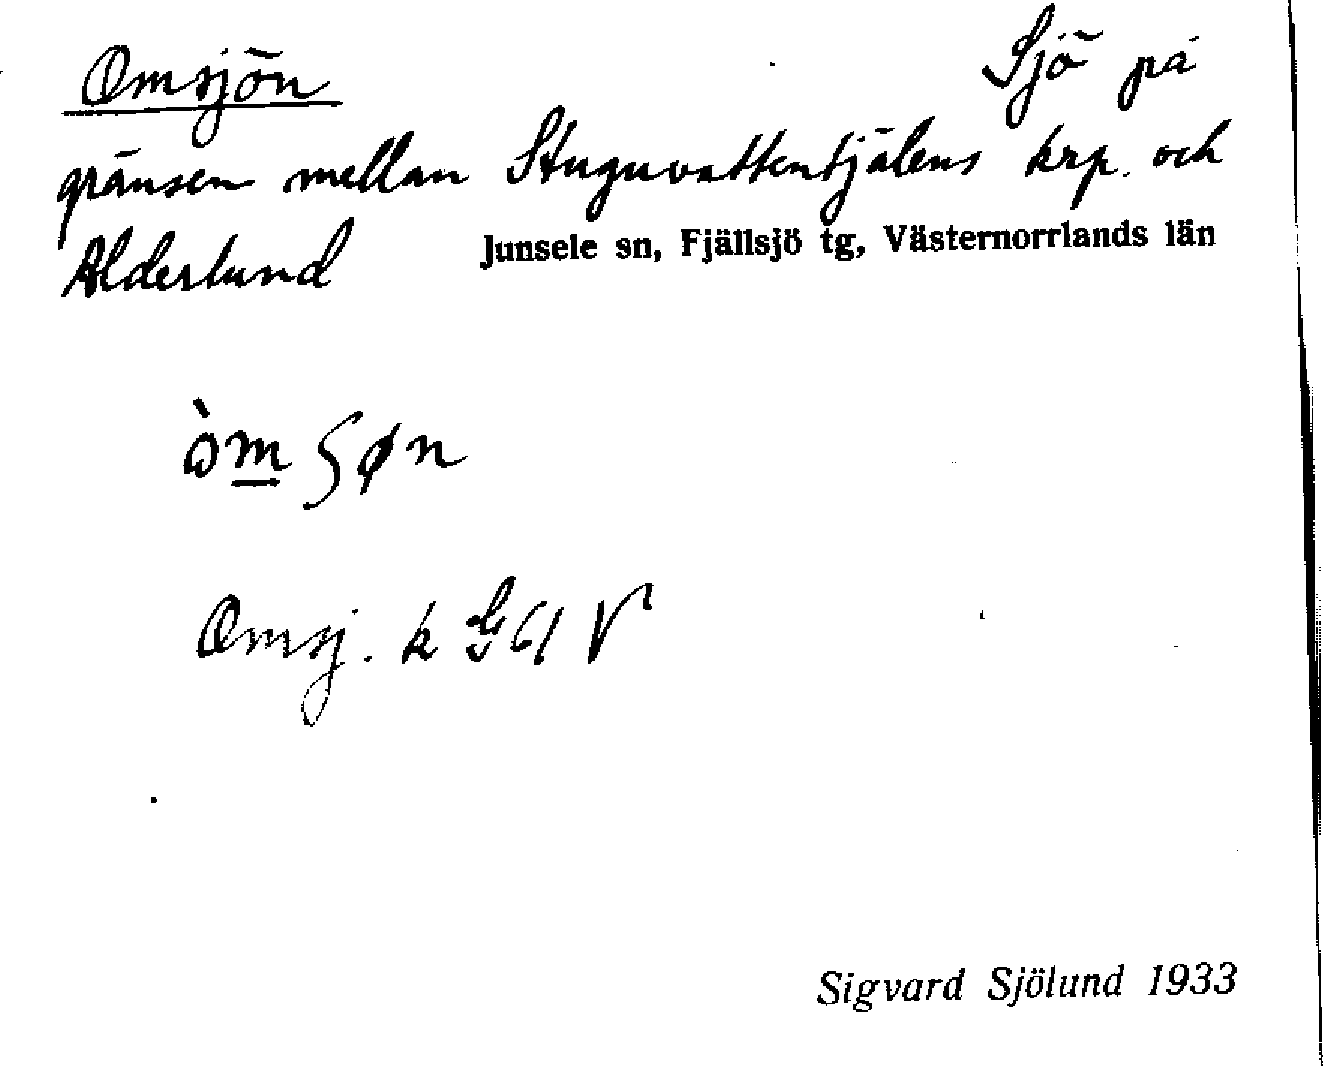 Omsjön Sjö på
gränsen mellan Stuguvattentjälens krp. och
Alderlund Junsele sn, Fjällsjö tg, Västernorrlands län
òm̲ ʃøn
Omsj. k G 61 V
Sigvard Sjölund 1933